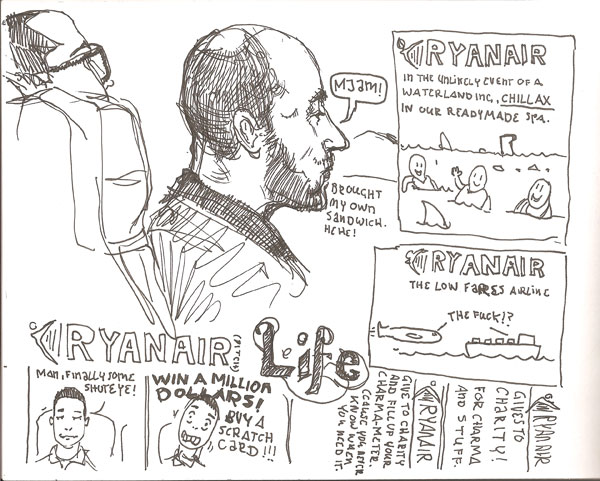 MJAM!
BROUGHT
MY OWN
SANDWICH.
HEHE!
RYANAIR
IN THE UNLIKELY EVENT OF A
WATERLANDING, CHILLAX
IN OUR READYMADE SPA.
RYANAIR
THE LOW FARES AIRLINE
THE FUCK!?
RYANAIR
LiFe
MAN, FINALLY SOME
SHUTEYE!
WIN A MILLION
DOLLARS!
BUY A
SCRATCH
CARD!!!
RYANAIR
GIVE TO CHARITY
AND FILL UP YOUR
CHARMA-METER.
CEAUSE YOU NEVER
KNOW WHEN
YOU NEED IT.
RYANAIR
GIVES TO
CHARITY!
FOR CHARMA
AND STUFF.